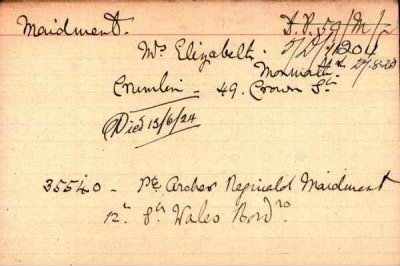 Maidment.
D.P. 59/M/
Mrs Elizabeth.
Monmouth.
27/8/20
Crumlin - 49. Crown St.
Died 13/6/24
35540 - Pte Archer Reginald Maidment
12th Sth Wales Bordrs.